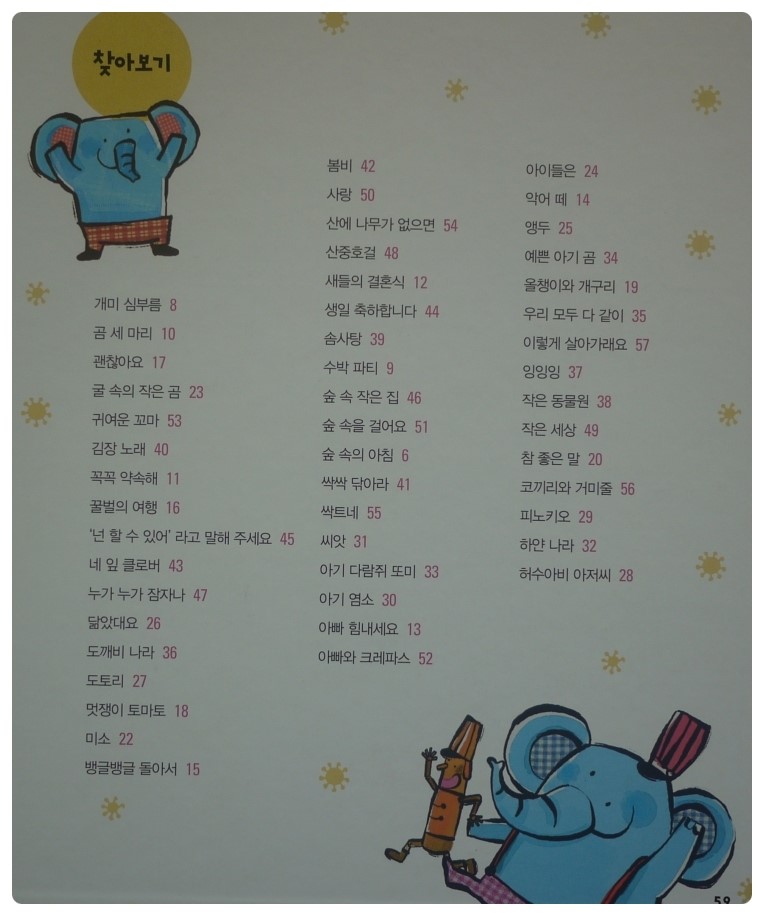 찾아보기
개미 심부름 8
곰 세 마리 10
괜찮아요 17
굴 속의 작은 곰 23
귀여운 꼬마 53
김장 노래 40
꼭꼭 약속해 11
꿀벌의 여행 16
'넌 할 수 있어' 라고 말해 주세요 45
네 잎 클로버 43
누가 누가 잠자나 47
닮았대요 26
도깨비 나라 36
도토리 27
멋쟁이 토마토 18
미소 22
뱅글뱅글 돌아서 15
봄비 42
사랑 50
산에 나무가 없으면 54
산중호걸 48
새들의 결혼식 12
생일 축하합니다 44
솜사탕 39
수박 파티 9
숲 속 작은 집 46
숲 속을 걸어요 51
숲 속의 아침 6
싹싹 닦아라 41
싹트네 55
씨앗 31
아기 다람쥐 또미 33
아기 염소 30
아빠 힘내세요 13
아빠와 크레파스 52
아이들은 24
악어 떼 14
앵두 25
예쁜 아기 곰 34
올챙이와 개구리 19
우리 모두 다 같이 35
이렇게 살아가래요 57
잉잉잉 37
작은 동물원 38
작은 세상 49
참 좋은 말 20
코끼리와 거미줄 56
피노키오 29
하얀 나라 32
허수아비 아저씨 28
59